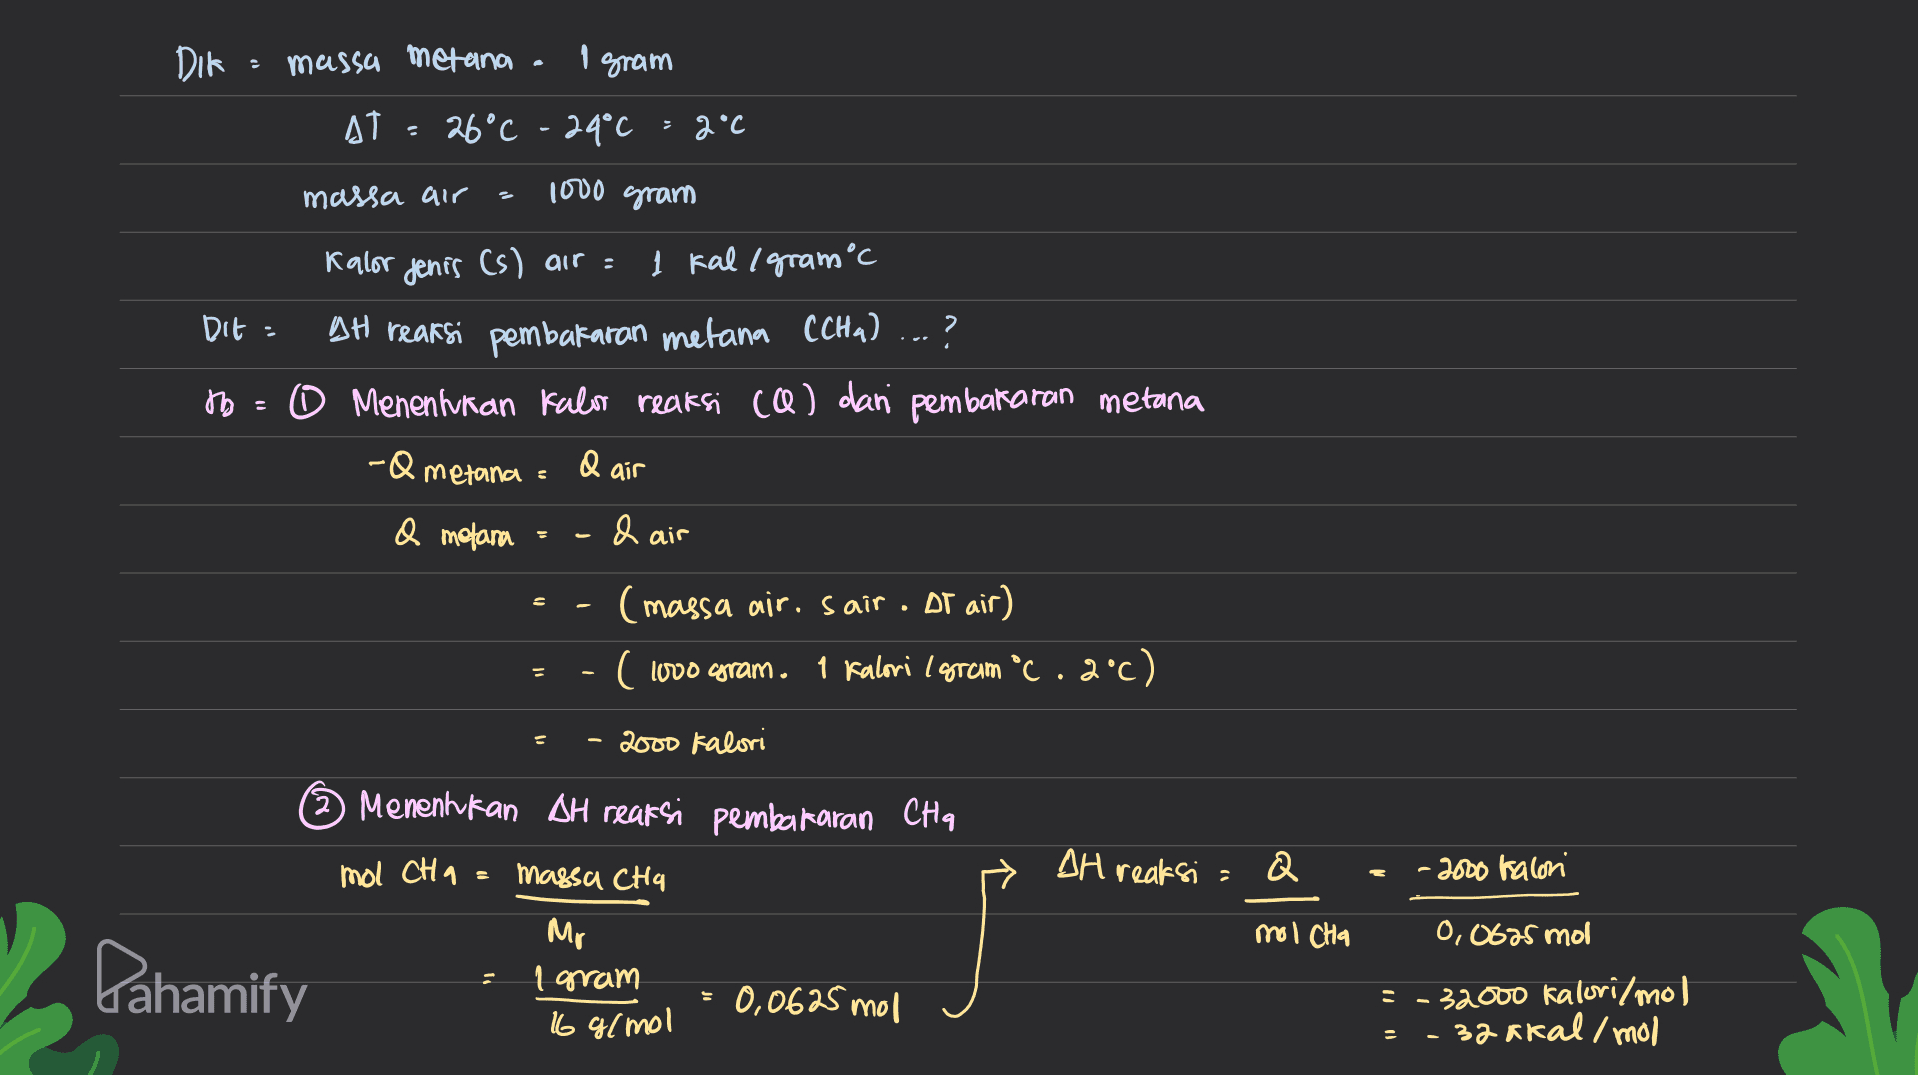 Dik = massa metana = 1 gram
ΔT = 26°C - 24°C = 2°C
massa air = 1000 gram
Kalor jenis (s) air = 1 kal/gram°C
Dit = ΔH reaksi pembakaran metana (CH4) ...?
Jb = ① Menentukan kalor reaksi (Q) dari pembakaran metana
-Q metana = Q air
Q metana = - Q air
= - (massa air. s air . ΔT air)
= - (1000 gram. 1 kalori/gram°C . 2°C)
= - 2000 kalori
② Menentukan ΔH reaksi pembakaran CH4
mol CH4 = massa CH4 / Mr
= 1 gram / 16 g/mol = 0,0625 mol
→ ΔH reaksi = Q / mol CH4 = -2000 kalori / 0,0625 mol
= - 32000 kalori/mol
= - 32 kkal/mol
Pahamify